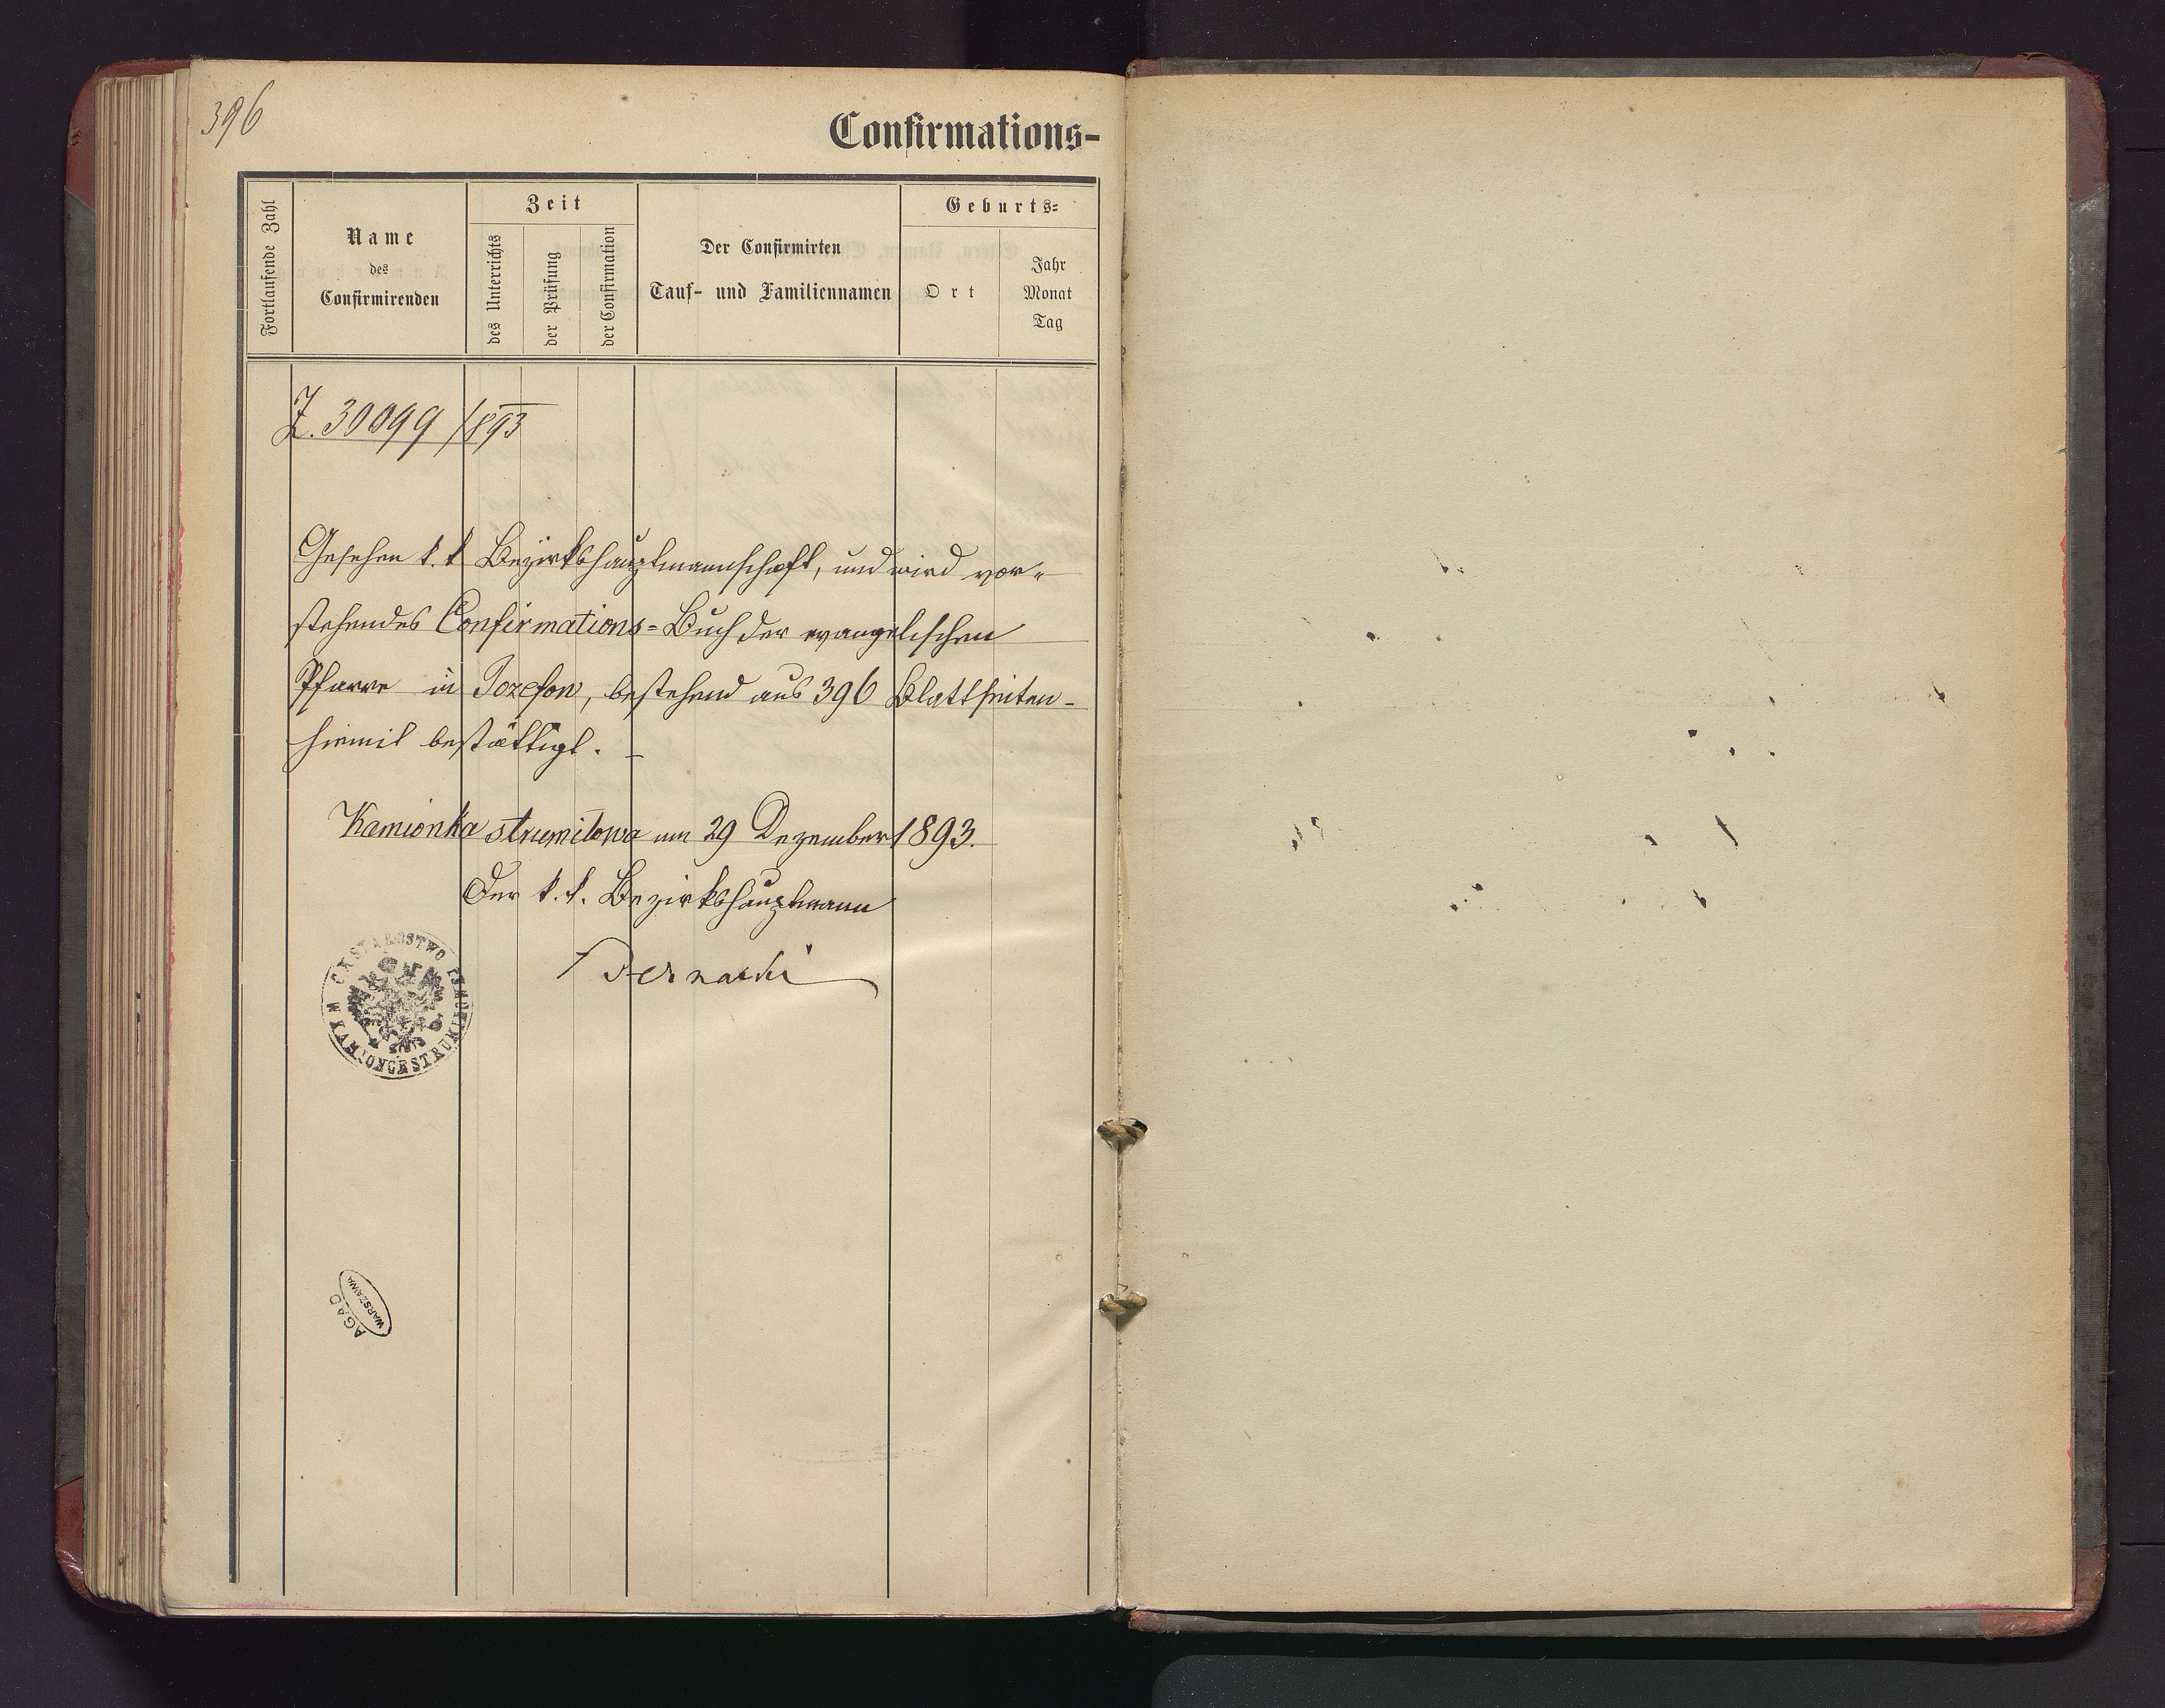 396
Confirmations-
Fortlaufende Zahl
Name
des
Confirmirenden
Zeit
des Unterrichts
der Prüfung
der Confirmation
Der Confirmirten
Tauf- und Familiennamen
Geburts-
Ort
Jahr
Monat
Tag
Z. 30099/893
Gesehen k. k Bezirkshauptmannschaft, und wird vor-
stehendes Confirmations-Buch der evangelischen
Pfarre in Jozefow, bestehend aus 396 Blattseiten-
hiemit bestättigt. -
Kamionka strumiłowa am 29 Dezember 1893.
Der k. k. Bezirkshauptmann
AGAD
WARSZAWA